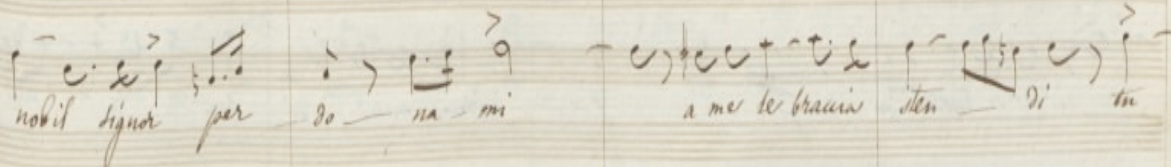 nobil signor per do na mi a me le braccia sten di tu